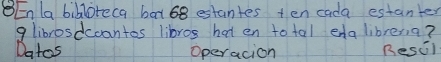 8 En la biblioteca hat 68 estantes ten cada estanter
9 libros dcuantos libros hat en total enla libreria?
Datos Operacion Resul